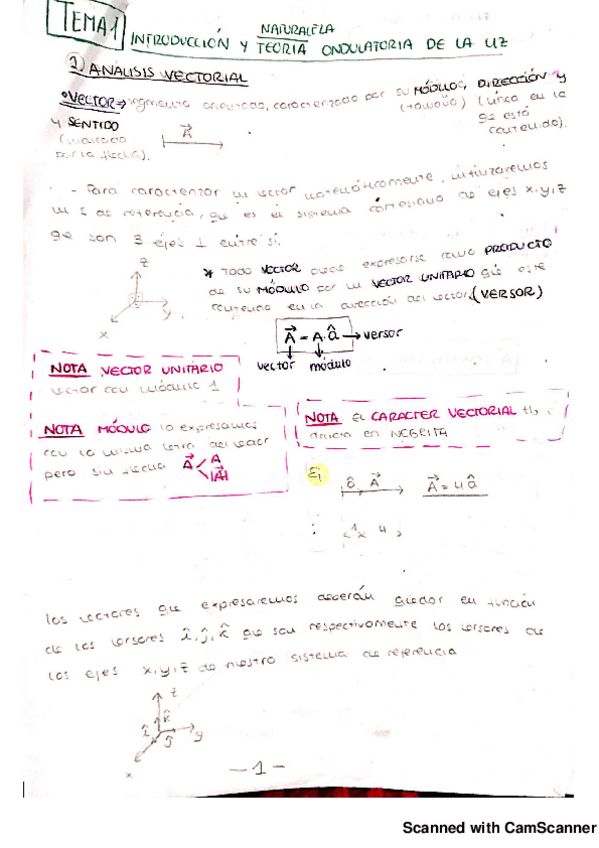 TEMA 1 INTRODUCCIÓN Y NATURALEZA TEORIA ONDULATORIA DE LA LUZ
1) ANALISIS VECTORIAL
• VECTOR → segmento orientado, caracterizado por su MÓDULO, DIRECCIÓN Y
(tamaño) (línea en la
que está
contenido).
Y SENTIDO
(marcado
por la flecha).
A⃗
- Para caracterizar un vector matemáticamente, utilizaremos
un S de referencia, que es el sistema cartesiano de ejes x,y,z
que son 3 ejes ⊥ entre sí.
z
y
x
* Todo VECTOR puede expresarse como PRODUCTO
de su MÓDULO por un VECTOR UNITARIO que esté
contenido en la dirección del vector. (VERSOR)
A⃗ = A·â → versor
vector módulo
NOTA VECTOR UNITARIO
vector con módulo 1
NOTA MÓDULO lo expresamos
con la misma letra del vector
pero sin flecha A⃗ < A
|A⃗|
NOTA EL CARACTER VECTORIAL tb
en NEGRITA
Ej
â A⃗ A⃗ = 4â
1 4
los vectores que expresaremos deberán quedar en función
de los versores î, ĵ, k̂ que son respectivamente los versores de
los ejes x,y,z de nuestro sistema de referencia
z
k̂
î
ĵ
y
x
-1-
Scanned with CamScanner